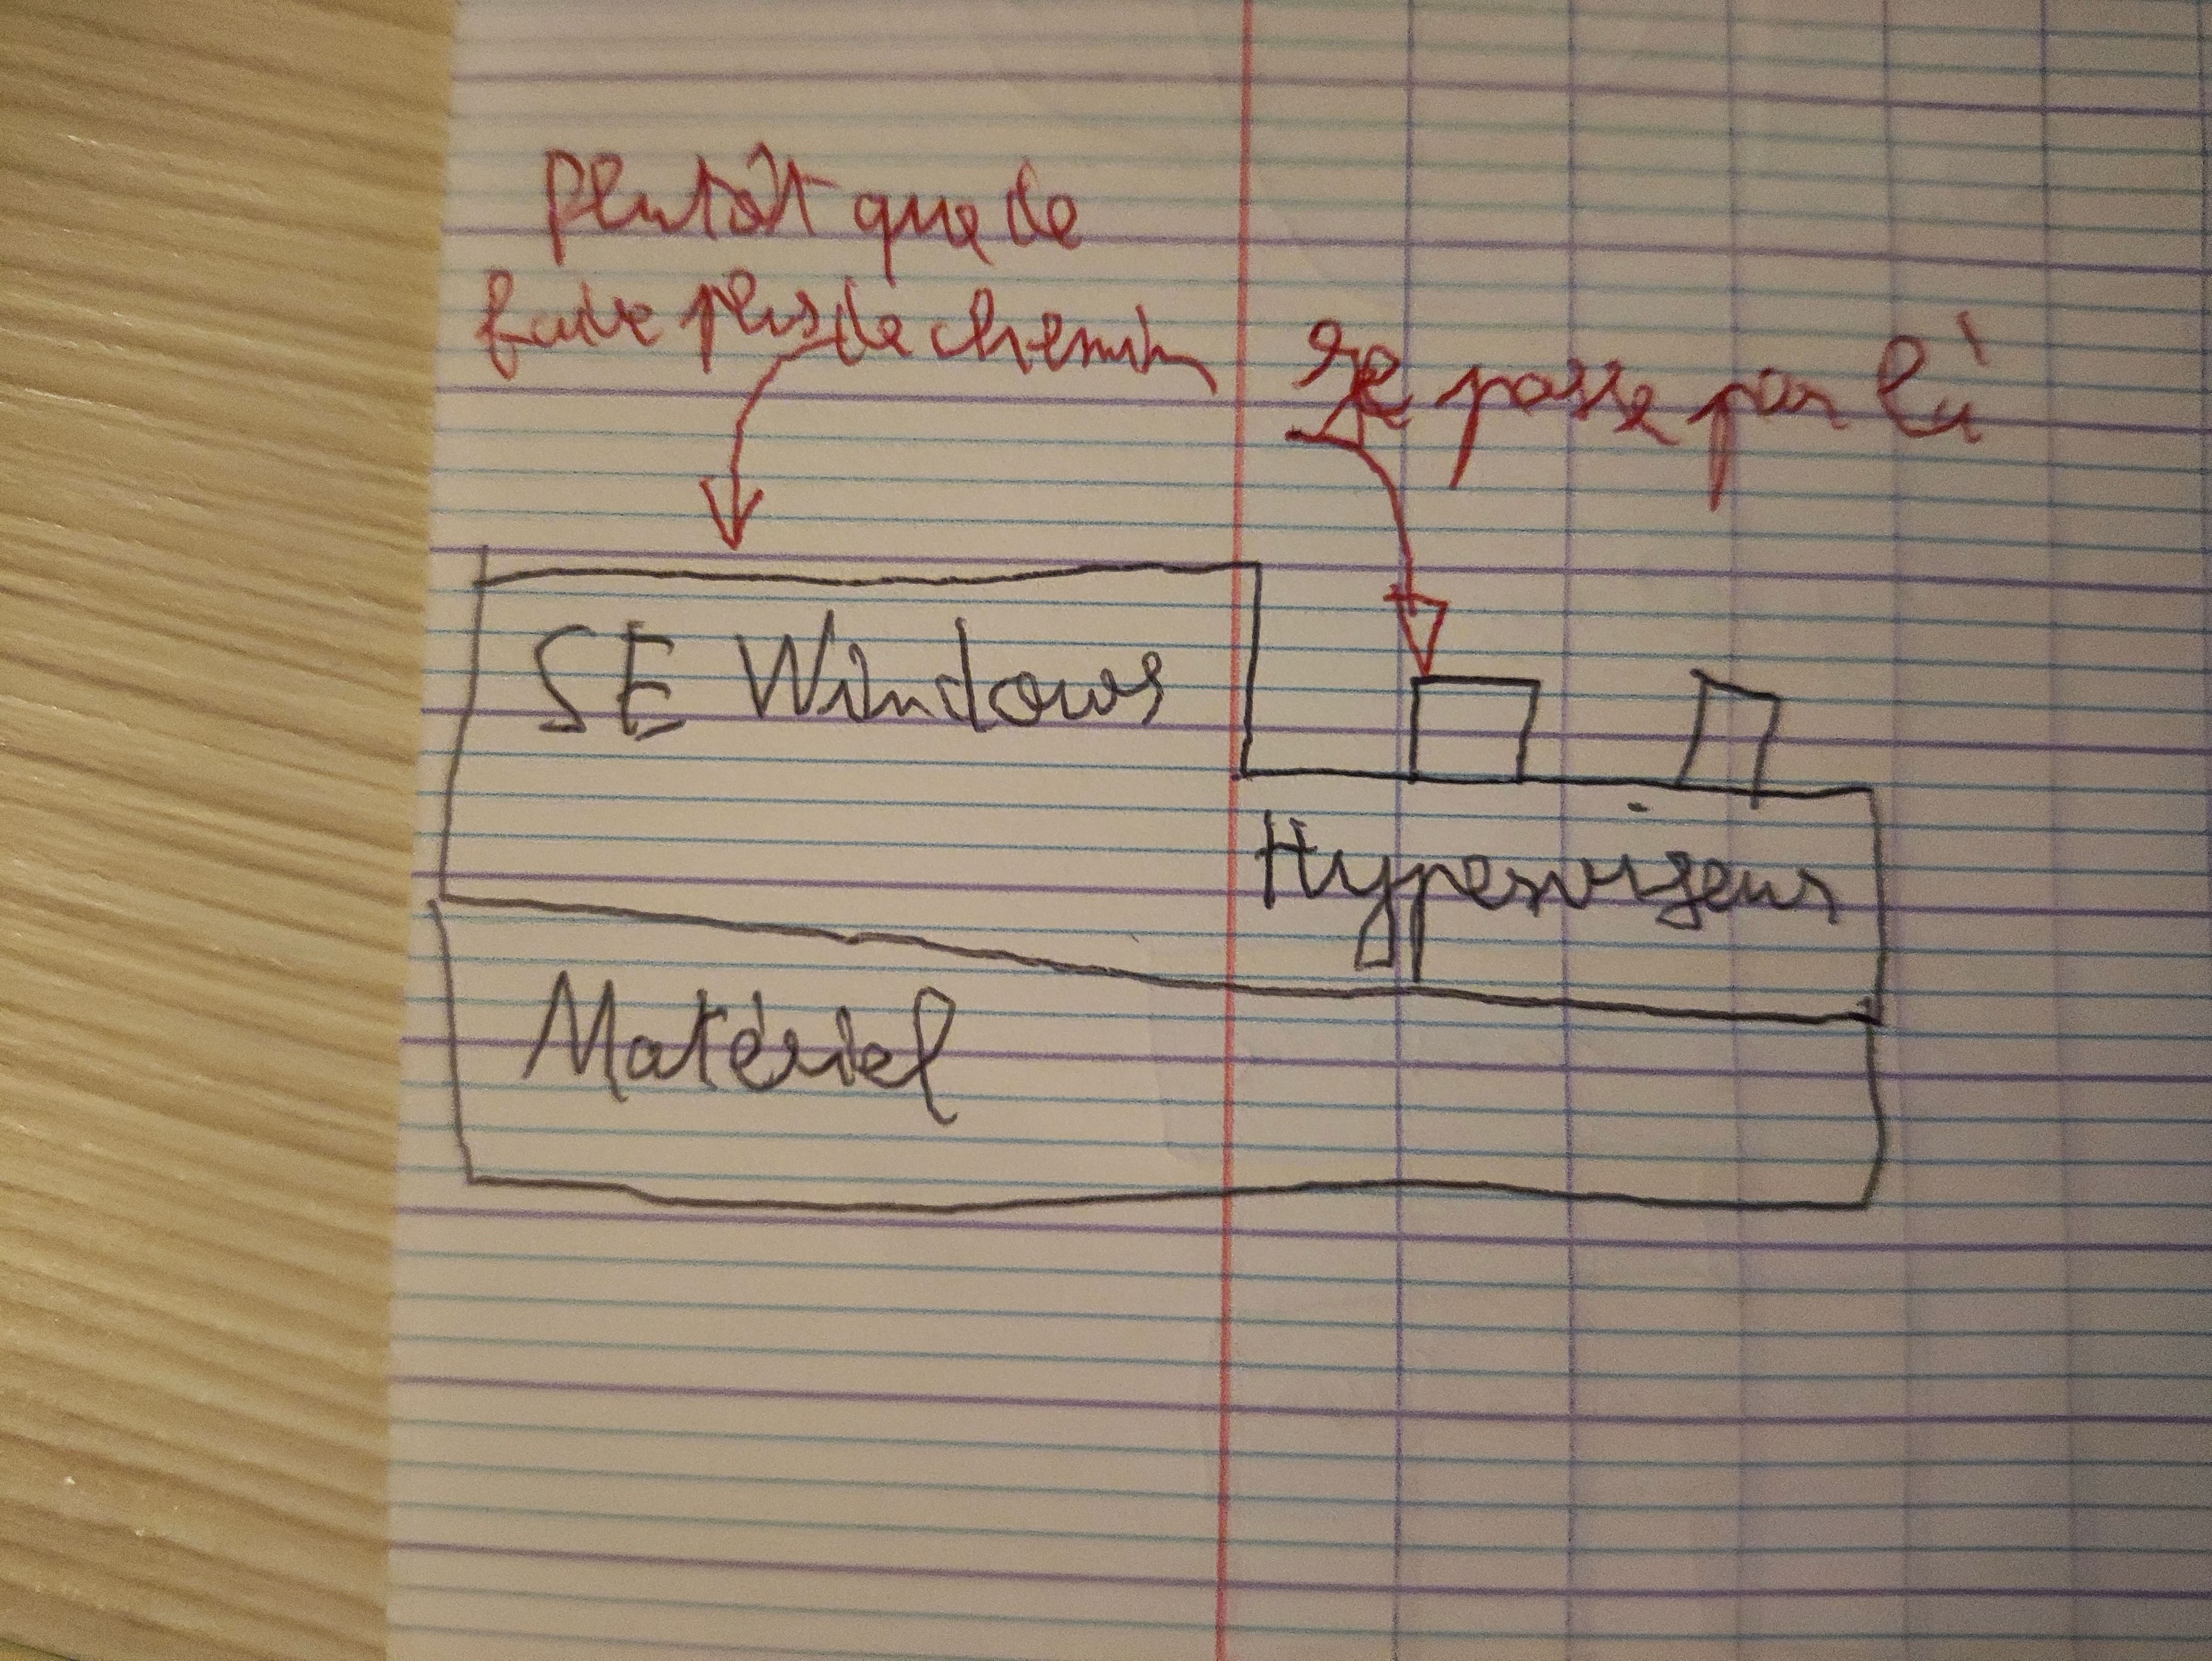 plutôt que de
faire plus de chemin,
Je passe par là
SE Windows
Hyperviseur
Matériel